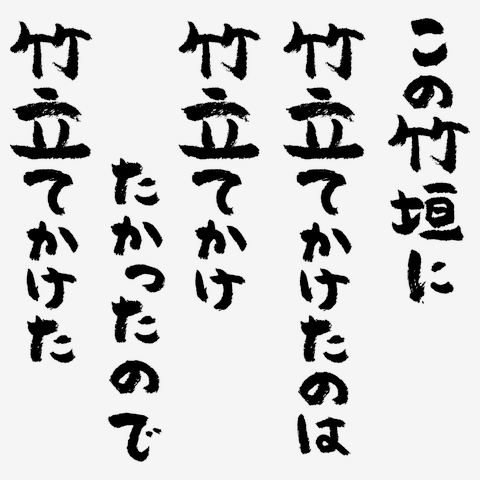 この竹垣に
竹立てかけたのは
竹立てかけ
たかったので
竹立てかけた